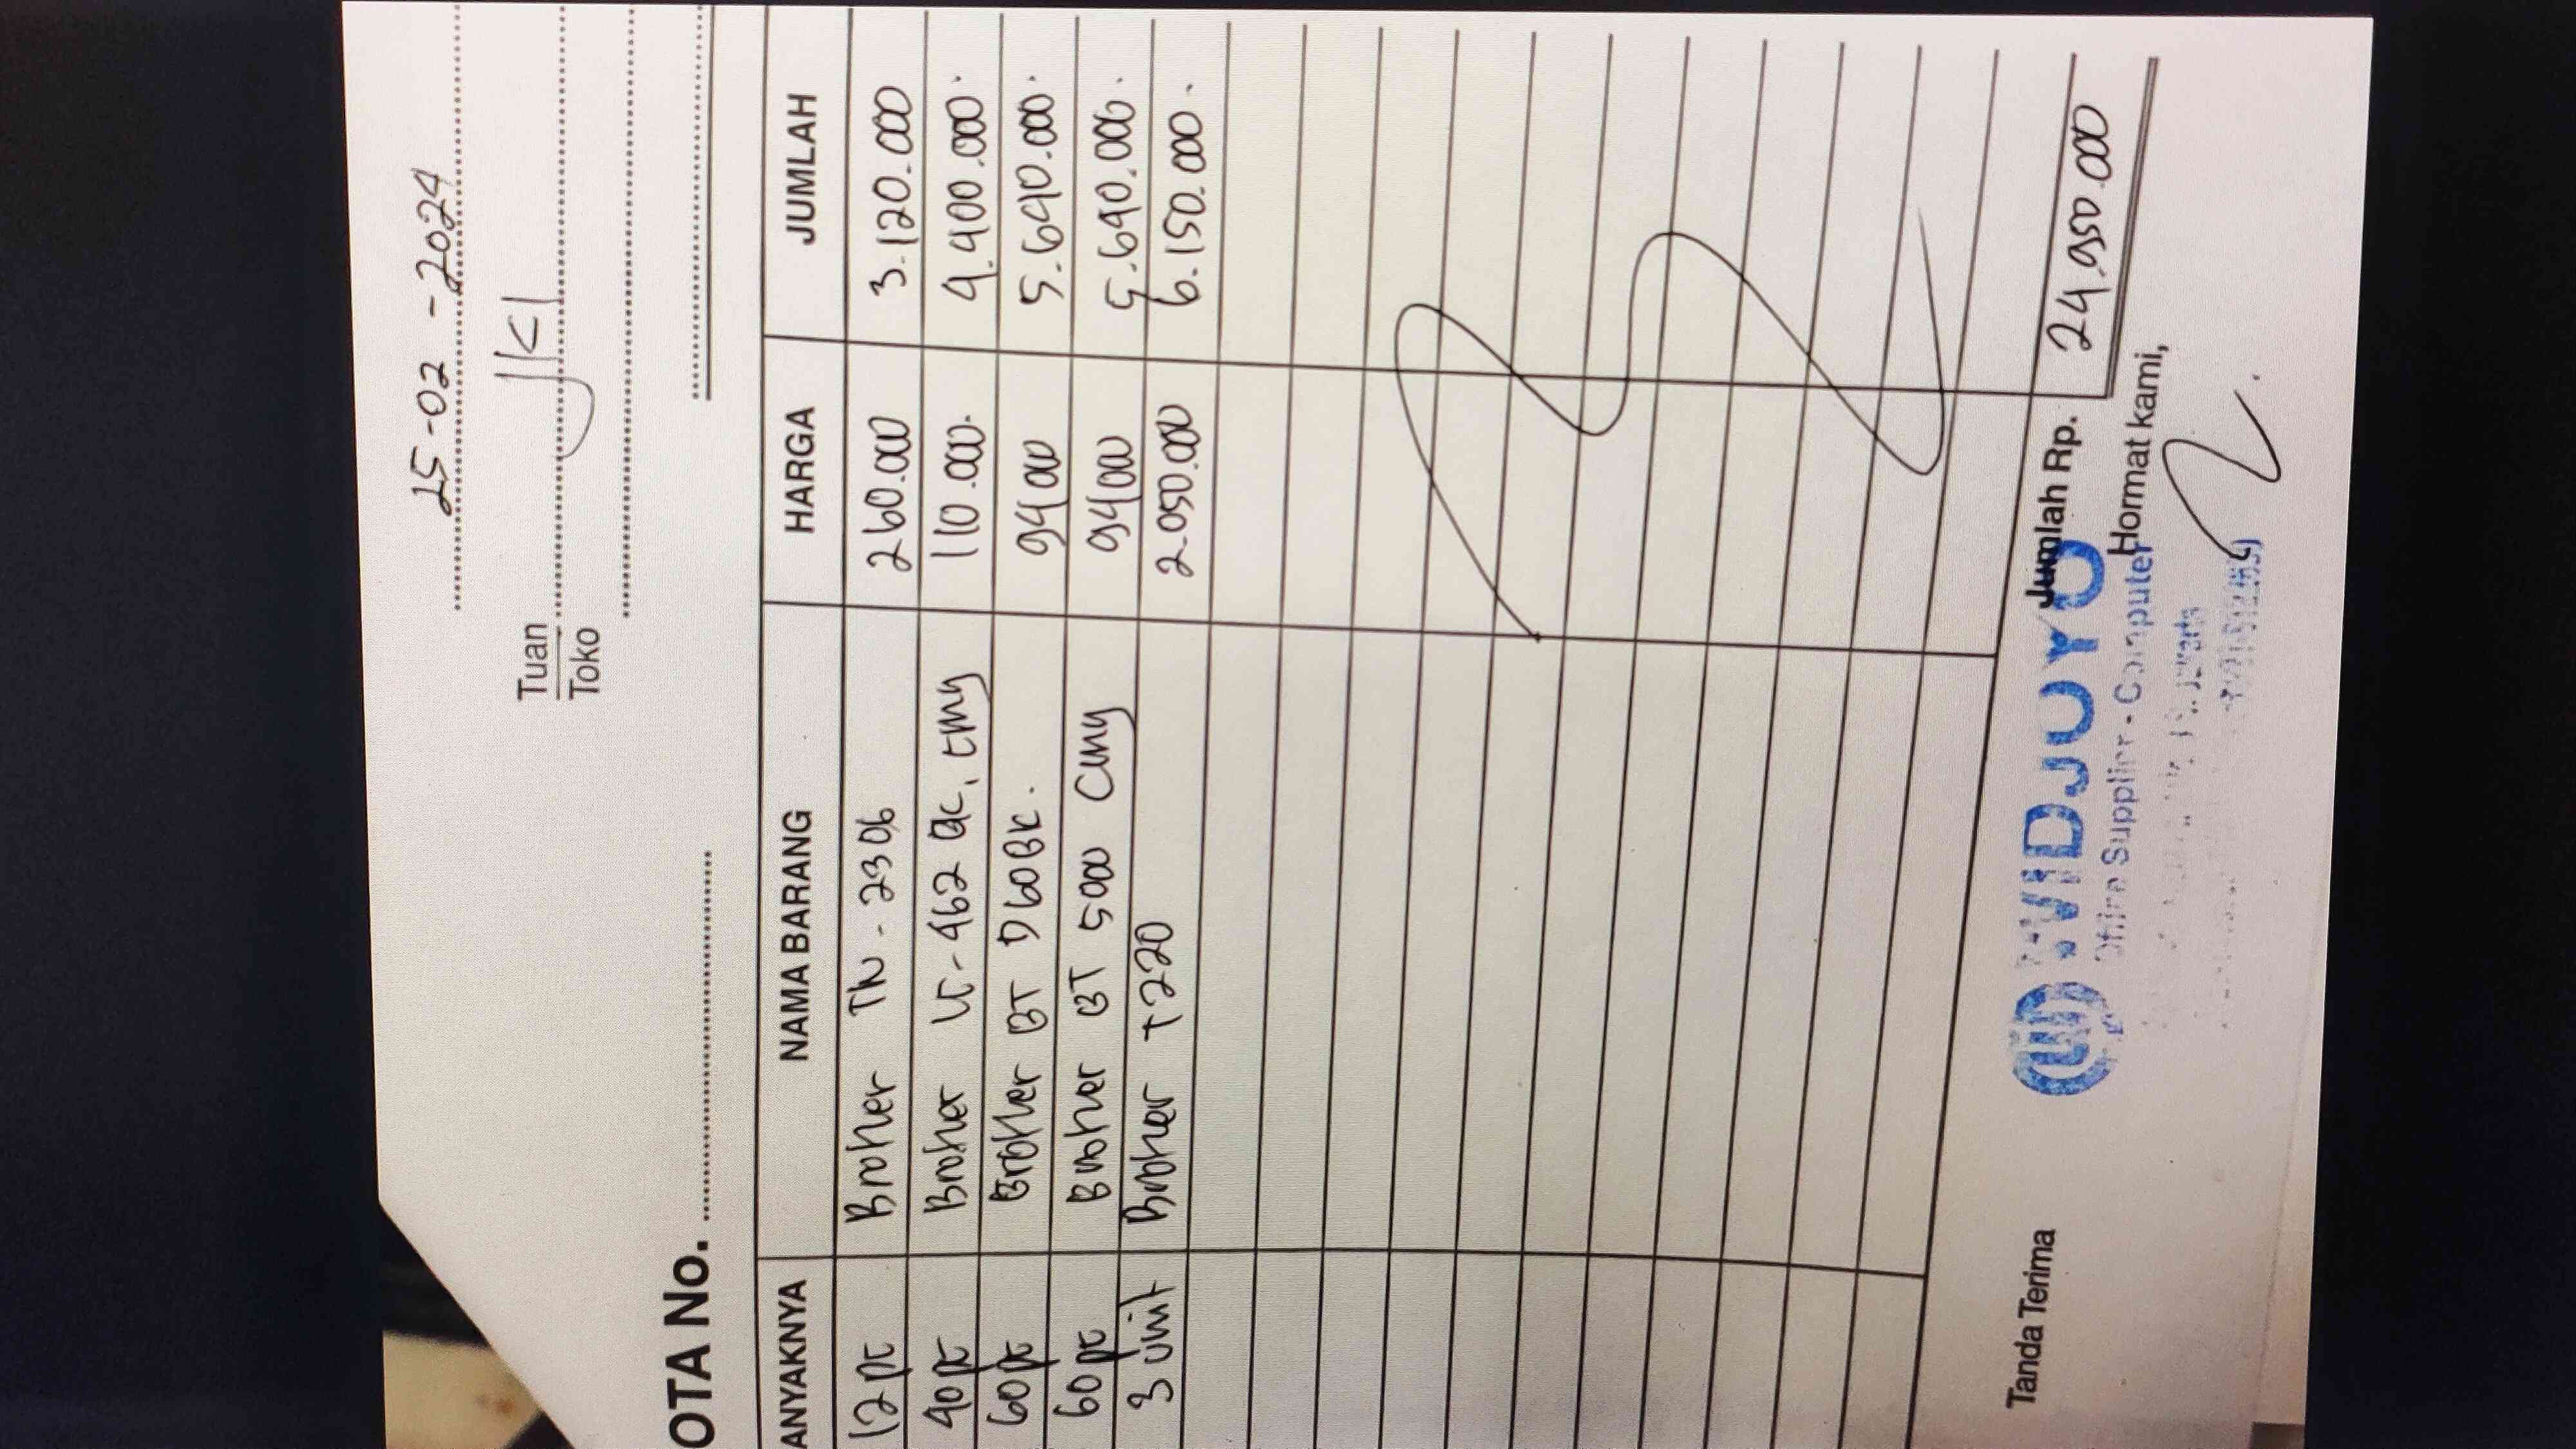 25-02-2024
Tuan JKI
Toko
OTA No.
ANYAKNYA NAMA BARANG HARGA JUMLAH
12 pc Broher TN-2306 260.000 3.120.000
40 pc Broher LC-462 BC, CMY 110.000. 4.400.000.
60 pc Broher BT D60BK. 94000 5.640.000.
60 pc Broher BT 5000 CMY 94000 5.640.000.
3 unit Broher T220 2.050.000 6.150.000.
Jumlah Rp. 24.950.000
Tanda Terima Hormat kami,
WIDJOYO
Office Supplier - Computer